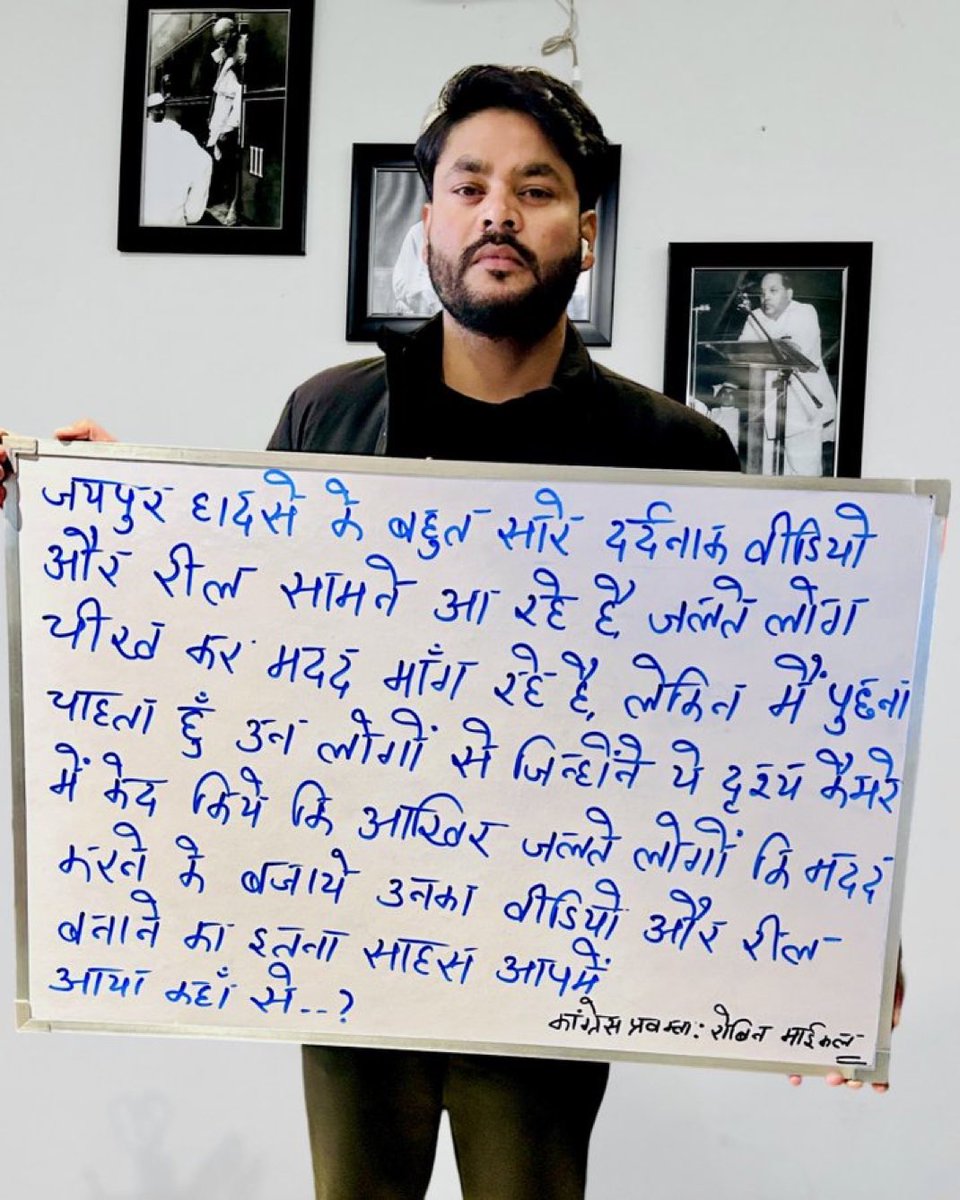 जयपुर हादसे के बहुत सारे दर्दनाक वीडियो
और रील सामने आ रहे है, जलते लोग
चीख कर मदद माँग रहे है, लेकिन मैं पुछना
चाहता हुँ उन लोगों से जिन्होंने ये दृश्य कैमरे
में केद किये कि आखिर जलते लोगों कि मदद
करने के बजाये उनका वीडियो और रील
बनाने का इतना साहस आपमें
आया कहाँ से--?
कांग्रेस प्रवक्ता: रोबिन माईकल